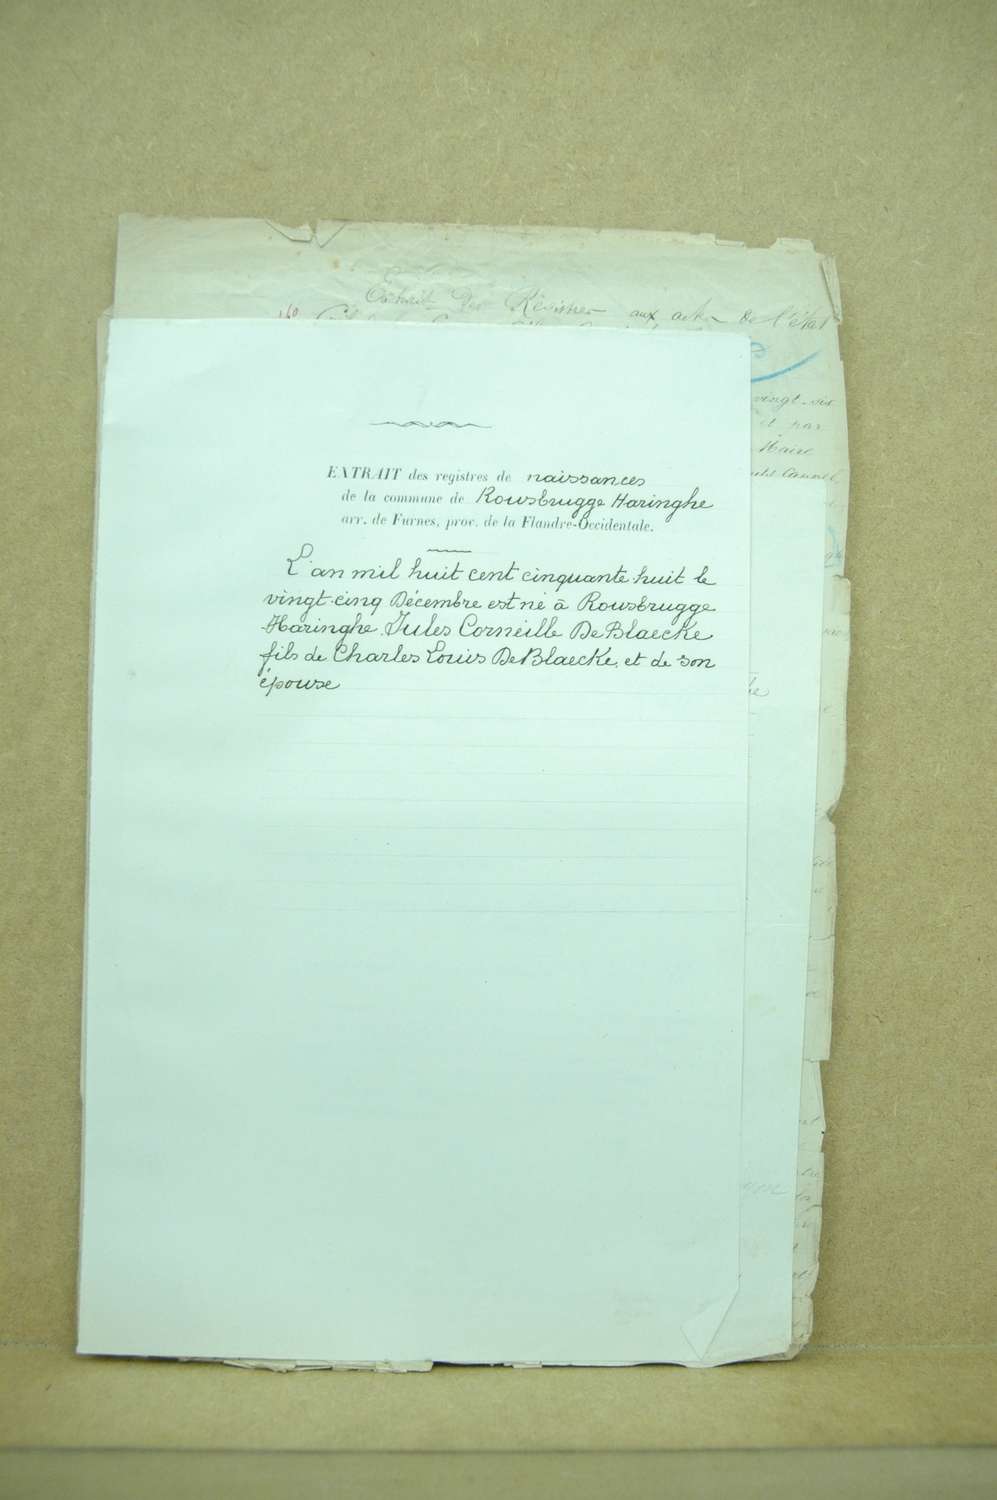 Extrait des Registres aux actes de l'état
160
vingt-six
et par
Maire
EXTRAIT des registres de naissances
de la commune de Rousbrugge Haringhe
arr. de Furnes, proc. de la Flandre-Occidentale.
L'an mil huit cent cinquante-huit le
vingt-cinq Décembre est né à Rousbrugge
Haringhe, Jules Corneille De Blaecke
fils de Charles Louis De Blaecke, et de son
épouse